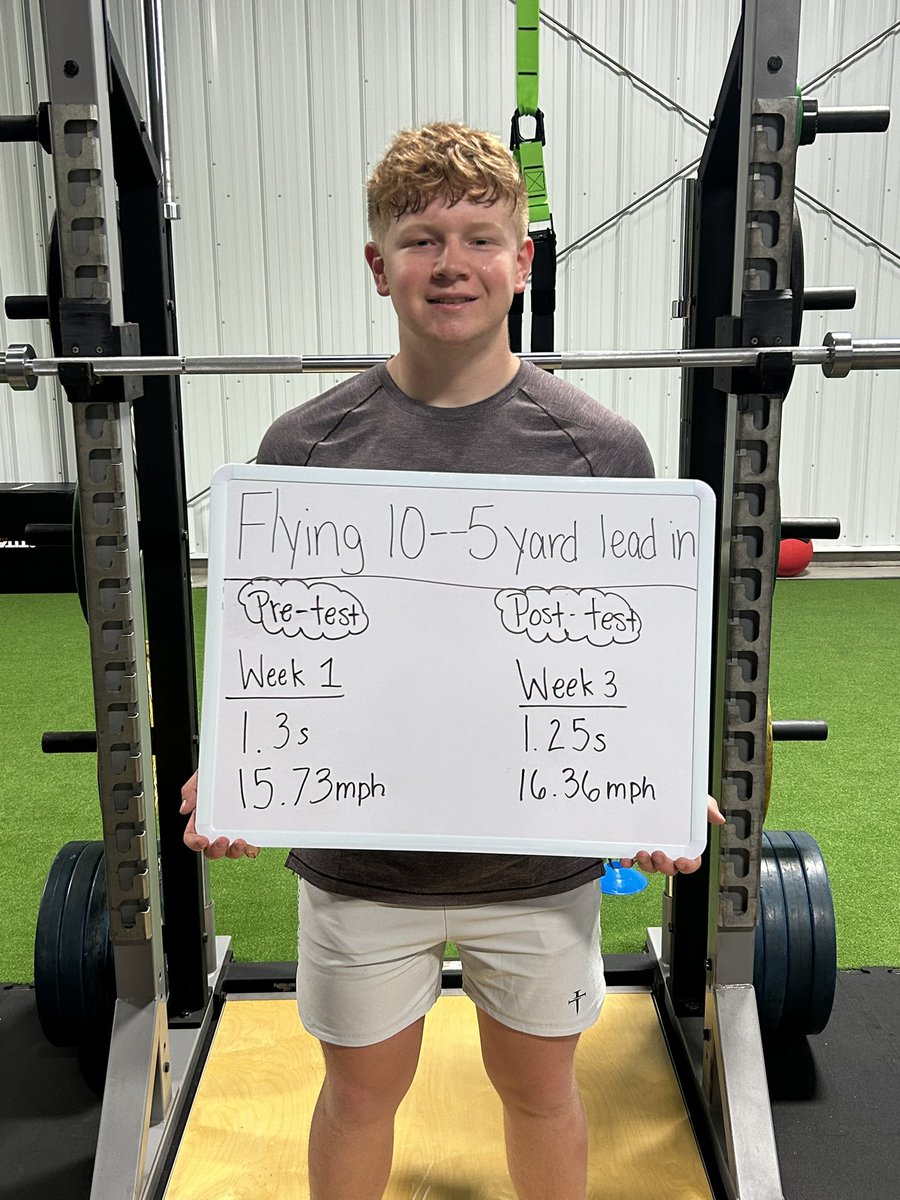 Flying 10--5 yard lead in
Pre-test
Week 1
1.3s
15.73mph
Post-test
Week 3
1.25s
16.36mph